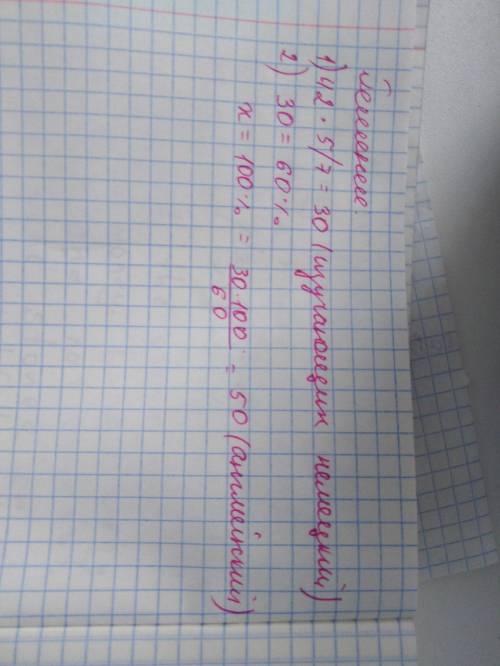 Решение.
1) 42 · 5/7 = 30 (изучающих немецкий)
2) 30 = 60%
x = 100% = 30·100/60 = 50 (английский)